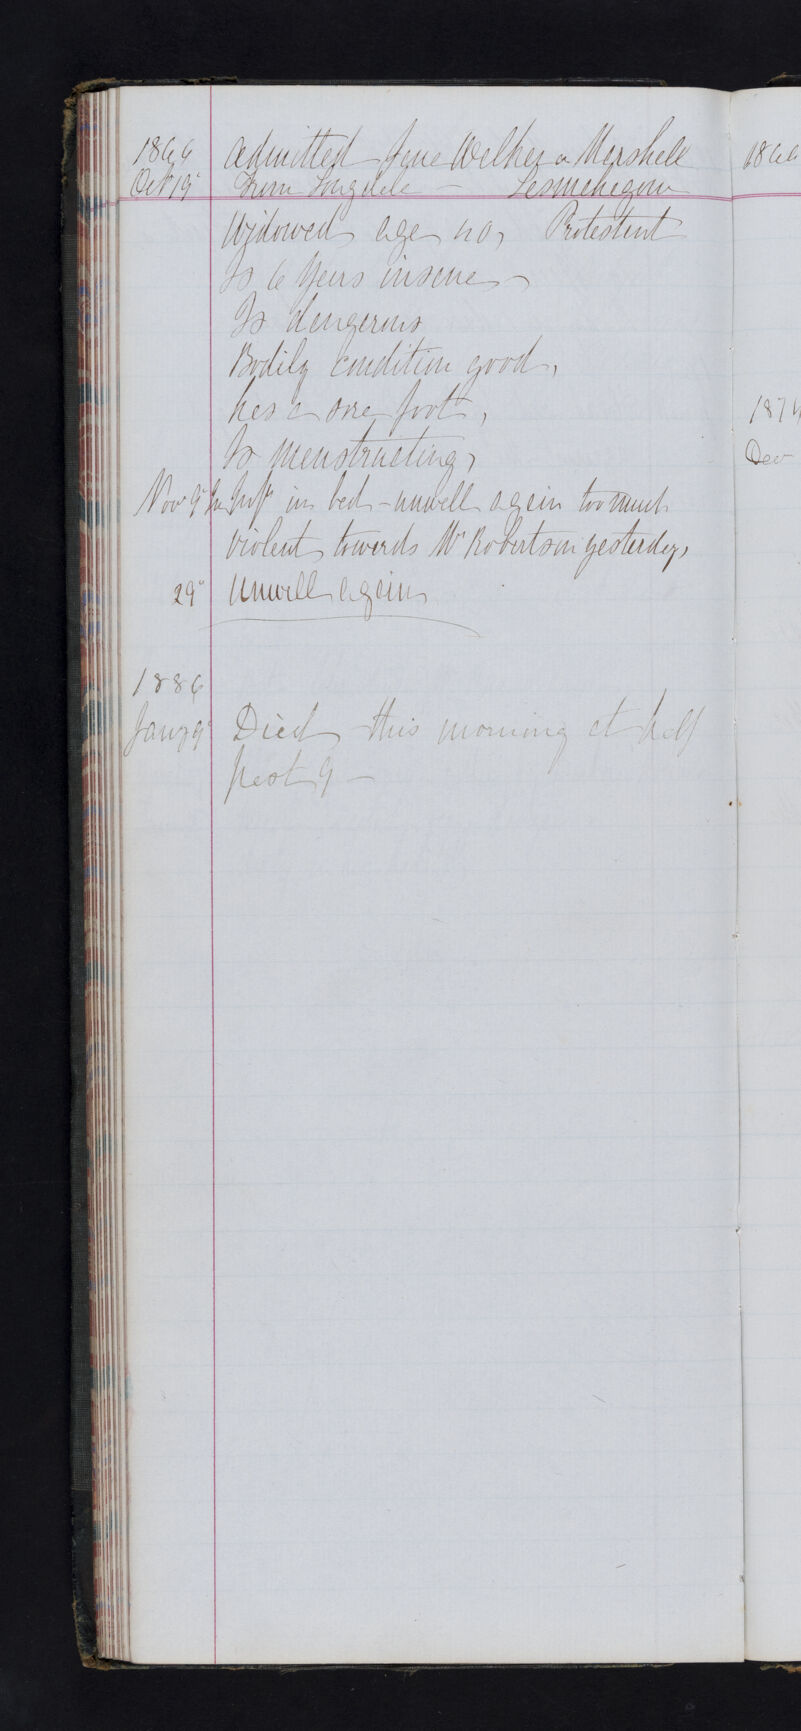 1866 Admitted Jane Walker or Marshall 1866
Oct 19" From Longdale — Lesmahagow
Widowed age 40, Protestant
Is 6 years insane —
Is dangerous
Bodily condition good,
has a sore foot, 187
Is menstruating, Dec
Nov 9" in bed – unwell again too much
violent towards Mr Robertson yesterday,
29" Unwell again
1886
Jany 9" Died this morning at half
past 9 —